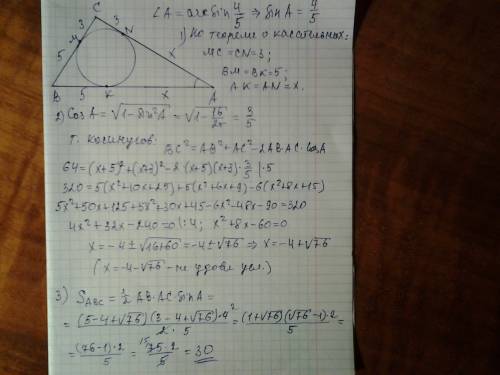 C
3
3
N
M
5
x
B
5
K
x
A
∠A = arcsin 4/5 ⇒ sin A = 4/5
1) По теореме о касательных:
MC = CN = 3;
BM = BK = 5;
AK = AN = x.
2) Cos A = √(1 - sin²A) = √(1 - 16/25) = 3/5
т. косинусов: BC² = AB² + AC² - 2AB·AC·cosA
64 = (x+5)² + (x+3)² - 2(x+5)(x+3)·3/5 |·5
320 = 5(x²+10x+25) + 5(x²+6x+9) - 6(x²+8x+15)
5x²+50x+125+5x²+30x+45-6x²-48x-90=320
4x²+32x-240=0 |:4; x²+8x-60=0
x = -4 ± √(16+60) = -4 ± √76 ⇒ x = -4+√76
(x = -4-√76 - не удовл. усл.)
3) S_ABC = 1/2 AB·AC·sin A =
= (5-4+√76)(3-4+√76)·4² / 2·5 = (1+√76)(√76-1)·2 / 5 =
= (76-1)·2 / 5 = 75¹⁵·2 / 5 = 30